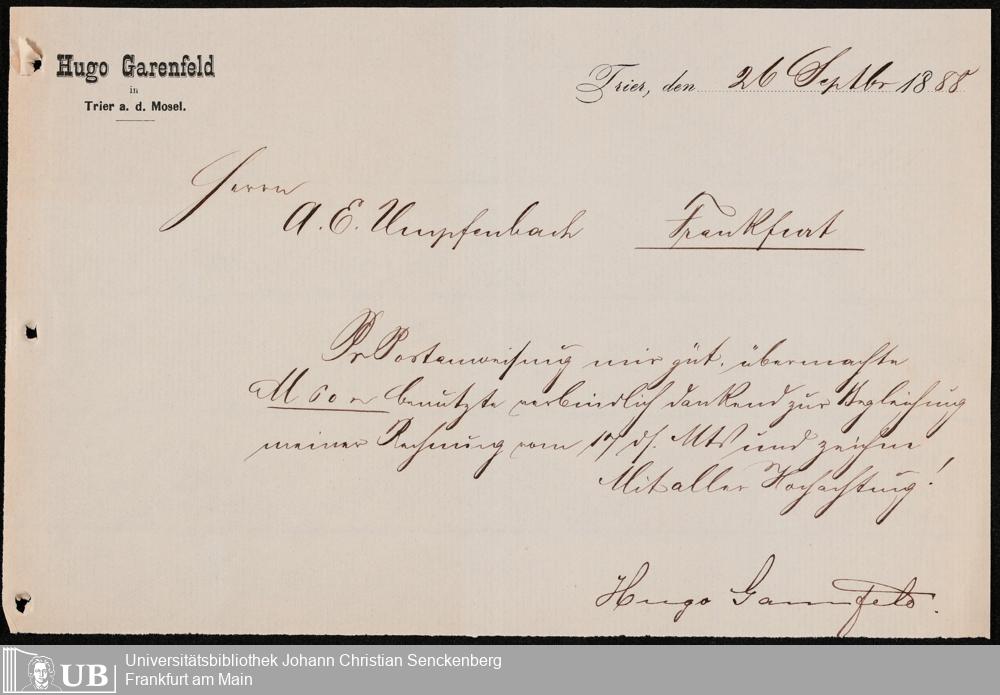 Hugo Garenfeld
in
Trier a. d. Mosel.
Trier, den 26 Septbr 1888
Herrn
A. E. Umpfenbach Frankfurt
Pr Postanweisung mir güt. übermachte
M 60 benutzte verbindlich dankend zur Begleichung
meiner Rechnung vom 17 ds. Mts und zeichne
Mit aller Hochachtung!
Hugo Garenfeld.
UB
Universitätsbibliothek Johann Christian Senckenberg
Frankfurt am Main